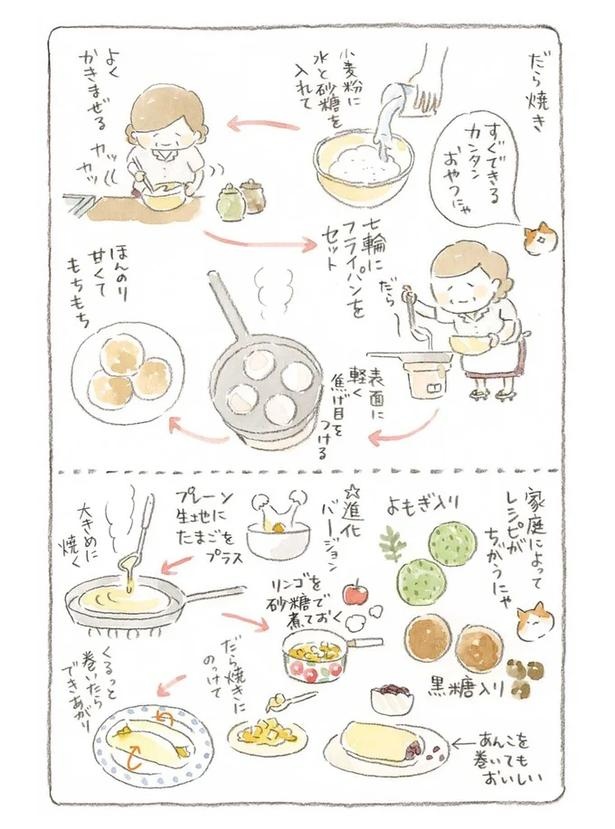 だら焼き
すぐできる
カンタン
おやつにゃ
小麦粉に
水と砂糖を
入れて
よく
かきまぜる
カッ
カッ
七輪に
フライパンを
セット
だら〜
表面に
軽く
焦げ目を
つける
ほんのり
甘くて
もちもち
家庭によって
レシピが
ちがうにゃ
よもぎ入り
黒糖入り
☆進化
バージョン
プレーン
生地に
たまごを
プラス
大きめに
焼く
リンゴを
砂糖で
煮ておく
だら焼きに
のっけて
くるっと
巻いたら
できあがり
あんこを
巻いても
おいしい